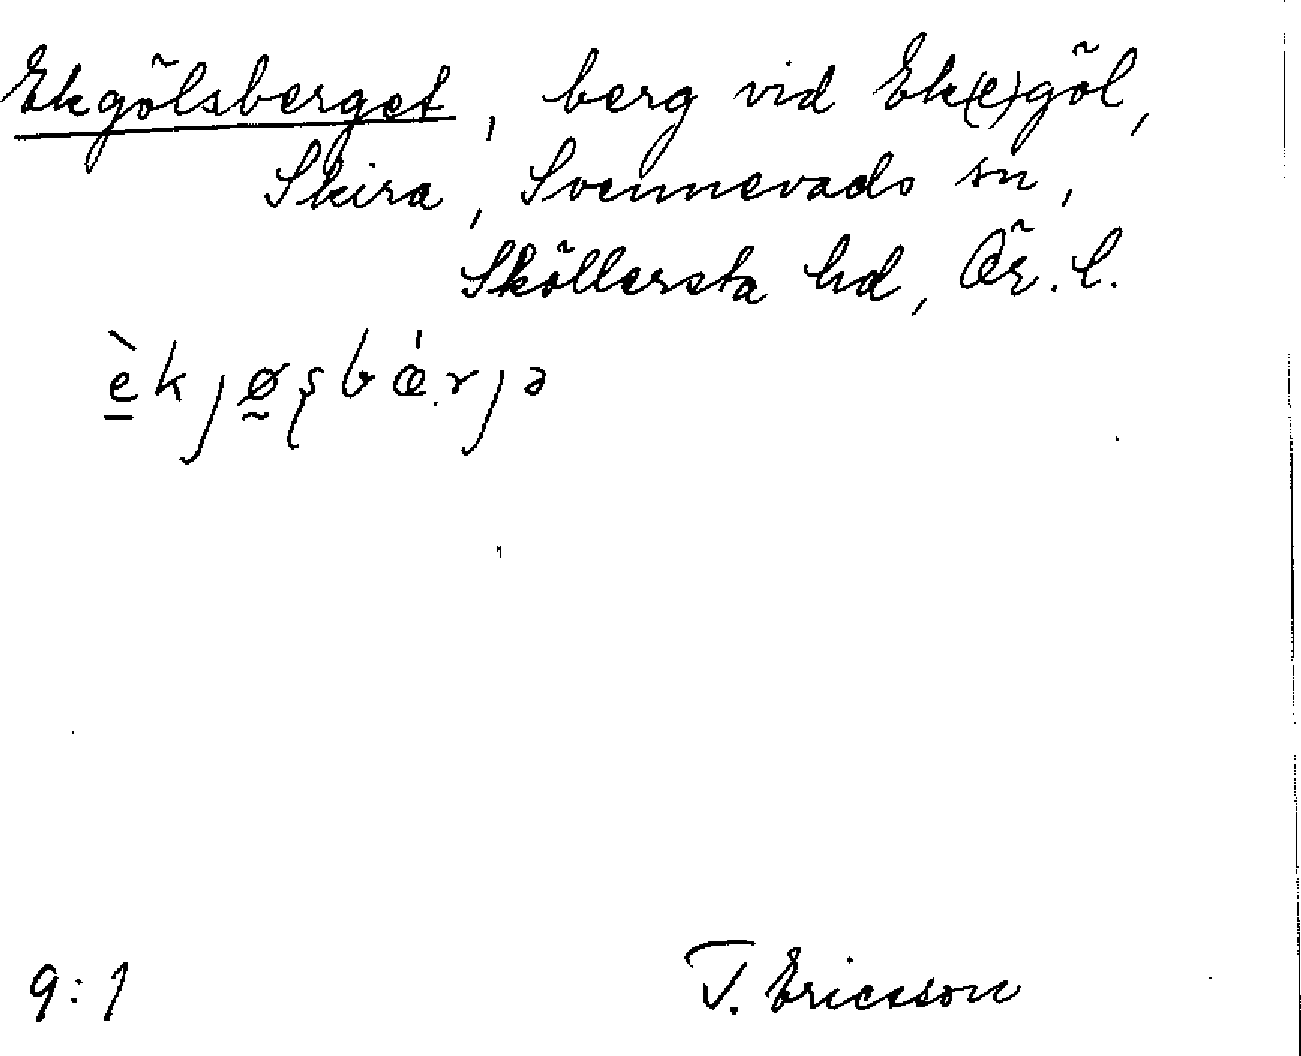 Ekgölsberget, berg vid Ek(e)göl,
Skira, Svennevads sn,
Sköllersta hd, Ör. l.
è̱kjø̰ʂbœ́.rjə
9:1 T. Ericsson